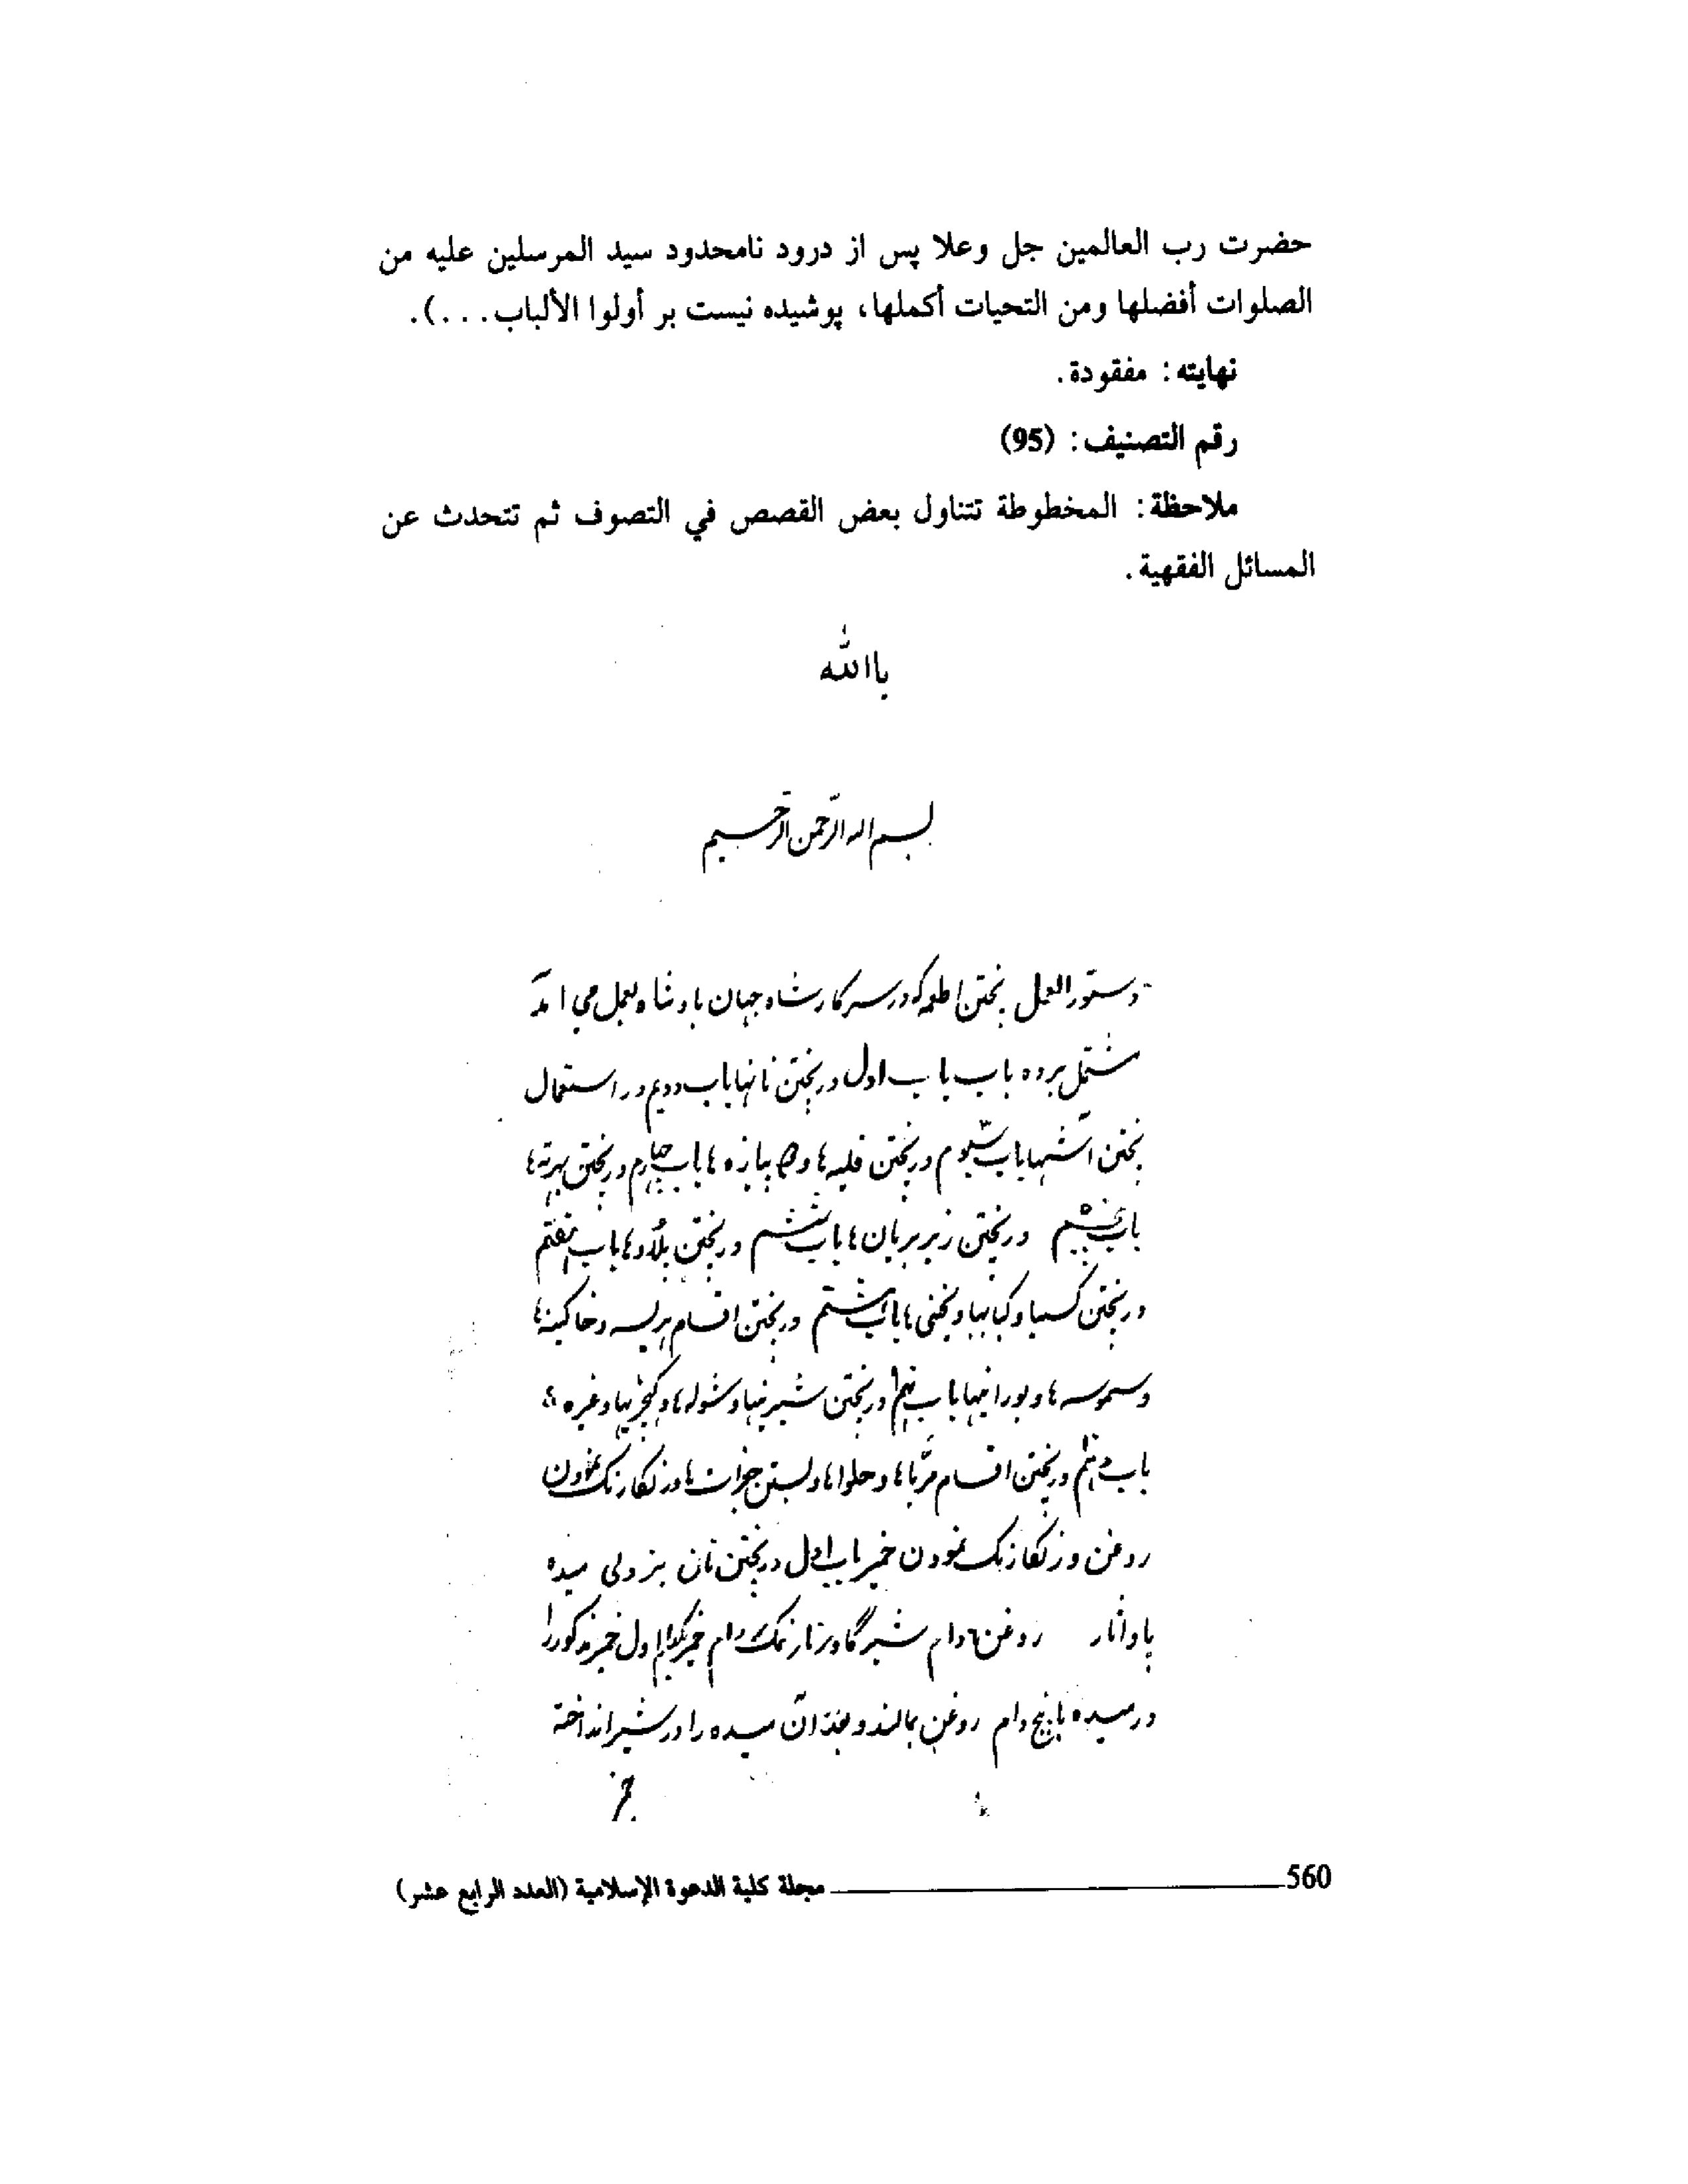 حضرت رب العالمين جل وعلا پس از درود نامحدود سيد المرسلين عليه من
الصلوات أفضلها ومن التحيات أكملها، پوشيده نيست بر أولوا الألباب...).
نهايته: مفقودة.
رقم التصنيف: (95)
ملاحظة: المخطوطة تتناول بعض القصص في التصوف ثم تتحدث عن
المسائل الفقهية.
ياالله
بسم الله الرحمن الرحيم
دستور العمل پختن اطعمه که در سرکار شاه جهان بادشاه بعمل می امد
مشتمل بر ده باب باب اول در پختن نانها باب دویم در استعمال
پختن اشها باب سیوم در پختن قلیه ها و دو پیازه ها باب چهارم در پختن بهرته ها
باب پنجم در پختن زیر بریان ها باب ششم در پختن پلاو ها باب هفتم
در پختن و کبابها و یخنی ها باب هشتم در پختن اقسام هریسه و خاکینه ها
و سموسه ها و بورانیها باب نهم در پختن شیرینیها و شوله ها و کهچریها و غیره
باب دهم در پختن اقسام مربا ها و حلوا ها و بستن جغرات ها و رنگارنگ نمودن
روغن و رنگارنگ نمودن خمیر باب اول در پختن نان میده
پاو اثار روغن دام شیر گاو نمک دام خمیر اول خمیر مذکور را
در میده با پنج دام روغن بمالند و بعد ان میده را در شیر انداخته
خمیر
560 مجلة كلية الدعوة الإسلامية (العدد الرابع عشر)